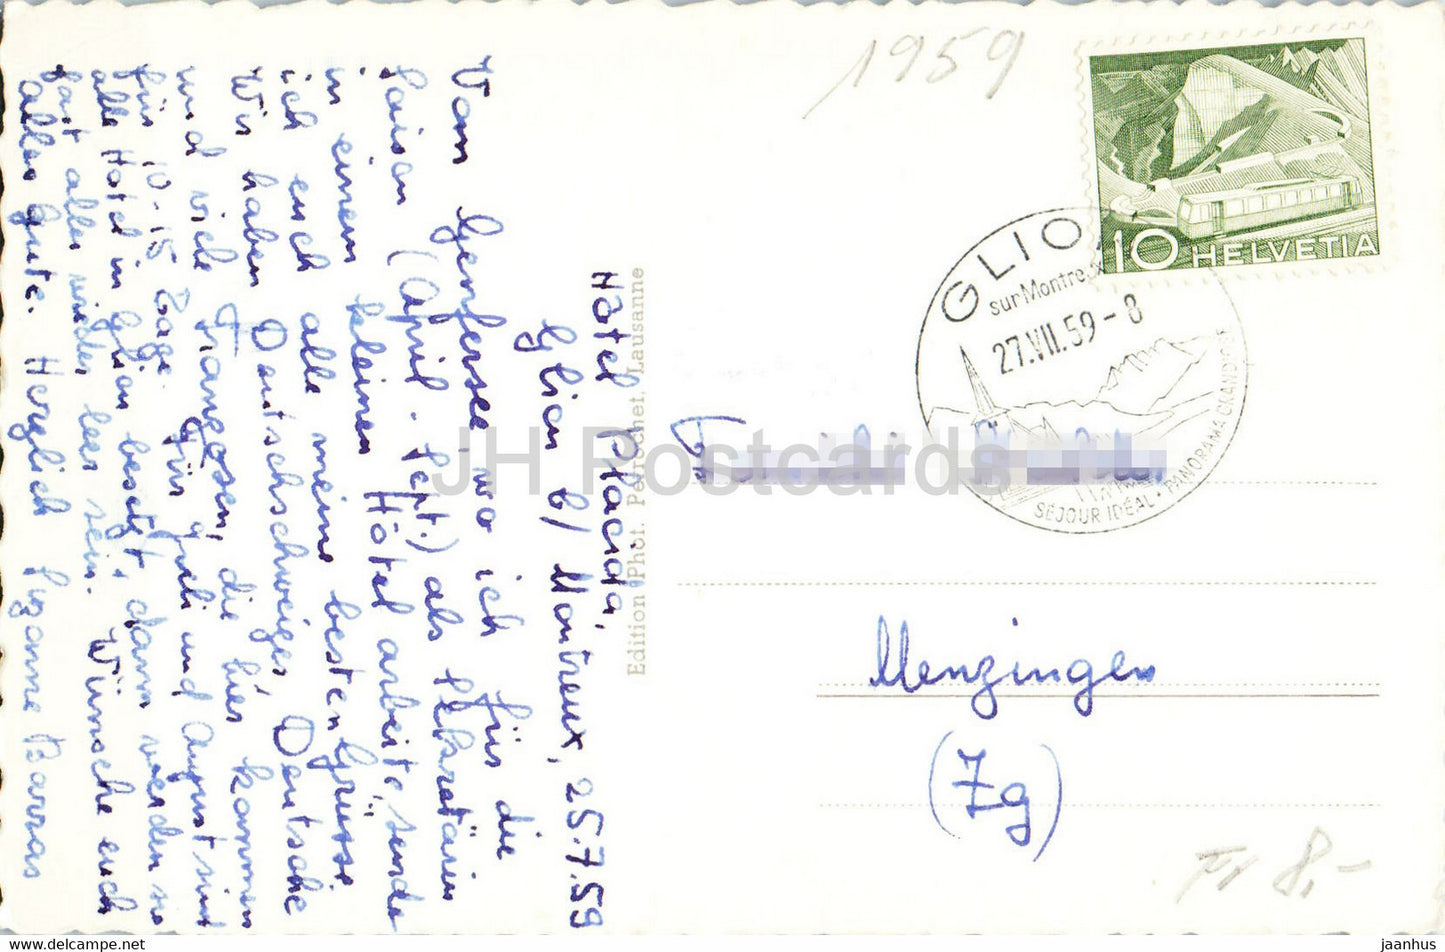 1959
10 HELVETIA
GLION
sur Montreux
27.VII.59-8
SÉJOUR IDÉAL • PANORAMA GRANDIOSE
Hôtel Placida,
Glion b/ Montreux, 25.7.59
Vom Genfersee, wo ich für die
Saison (April - Sept.) als Sekretärin
in einem kleinen Hôtel arbeite, sende
ich euch alle meine besten Grüsse.
Wir haben Deutschweizer, Deutsche
und viele Franzosen, die hier kommen
für 10-15 Tage. Für Juli und August sind
alle Hotel in Glion besetzt, dann werden sie
fast alle wieder leer sein. Wünsche euch
alles Gute. Herzlich Suzanne Barras
Edition Phot. Perrochet, Lausanne
Menzingen
(Zg)
Fr 8.-
JH Postcards
https://jhpostcards.com
jaanhus